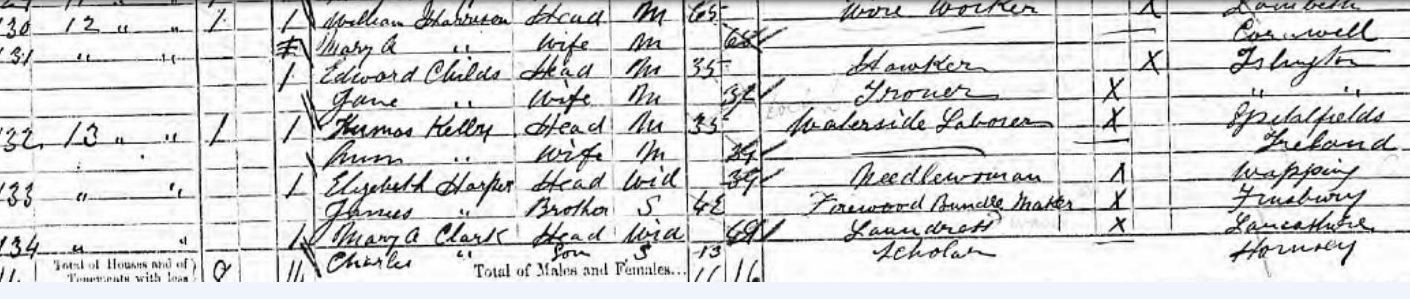 130 12 " " 1 1 William Harrison Head M 65 Wire Worker Lambeth
131 " " Mary A " Wife M 68
1 Edward Childs Head M 35 Hawker X Islington
Jane " Wife M 32 Ironer X " "
132 13 " " 1 1 Kelly Head M 35 Waterside Laborer X Spitalfields
Ann " Wife M 39 Ireland
133 " " 1 Elizabeth Harper Head Wid 39 Needlewoman Wapping
James " Brother S 42 Firewood Bundle Maker X Finsbury
134 " " 1 Mary A Clark Head Wid 69 Laundress X Lancashire
Charles " Son S 13 Scholar Hornsey
Total of Houses and of
Tenements with less
Total of Males and Females...